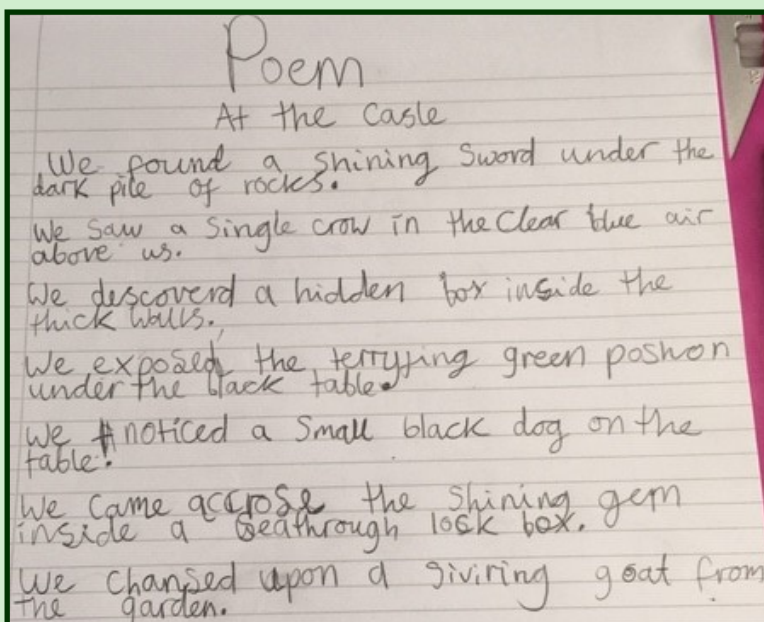 Poem
At the Casle
We found a shining Sword under the
dark pile of rocks.
We saw a single crow in the Clear blue air
above us.
We descoverd a hidden box inside the
thick walls.
We exposed the terryfing green poshon
under the black table.
We noticed a small black dog on the
table.
We came accrose the shining gem
inside a seathrough lock box.
We chansed upon a giviring goat from
the garden.